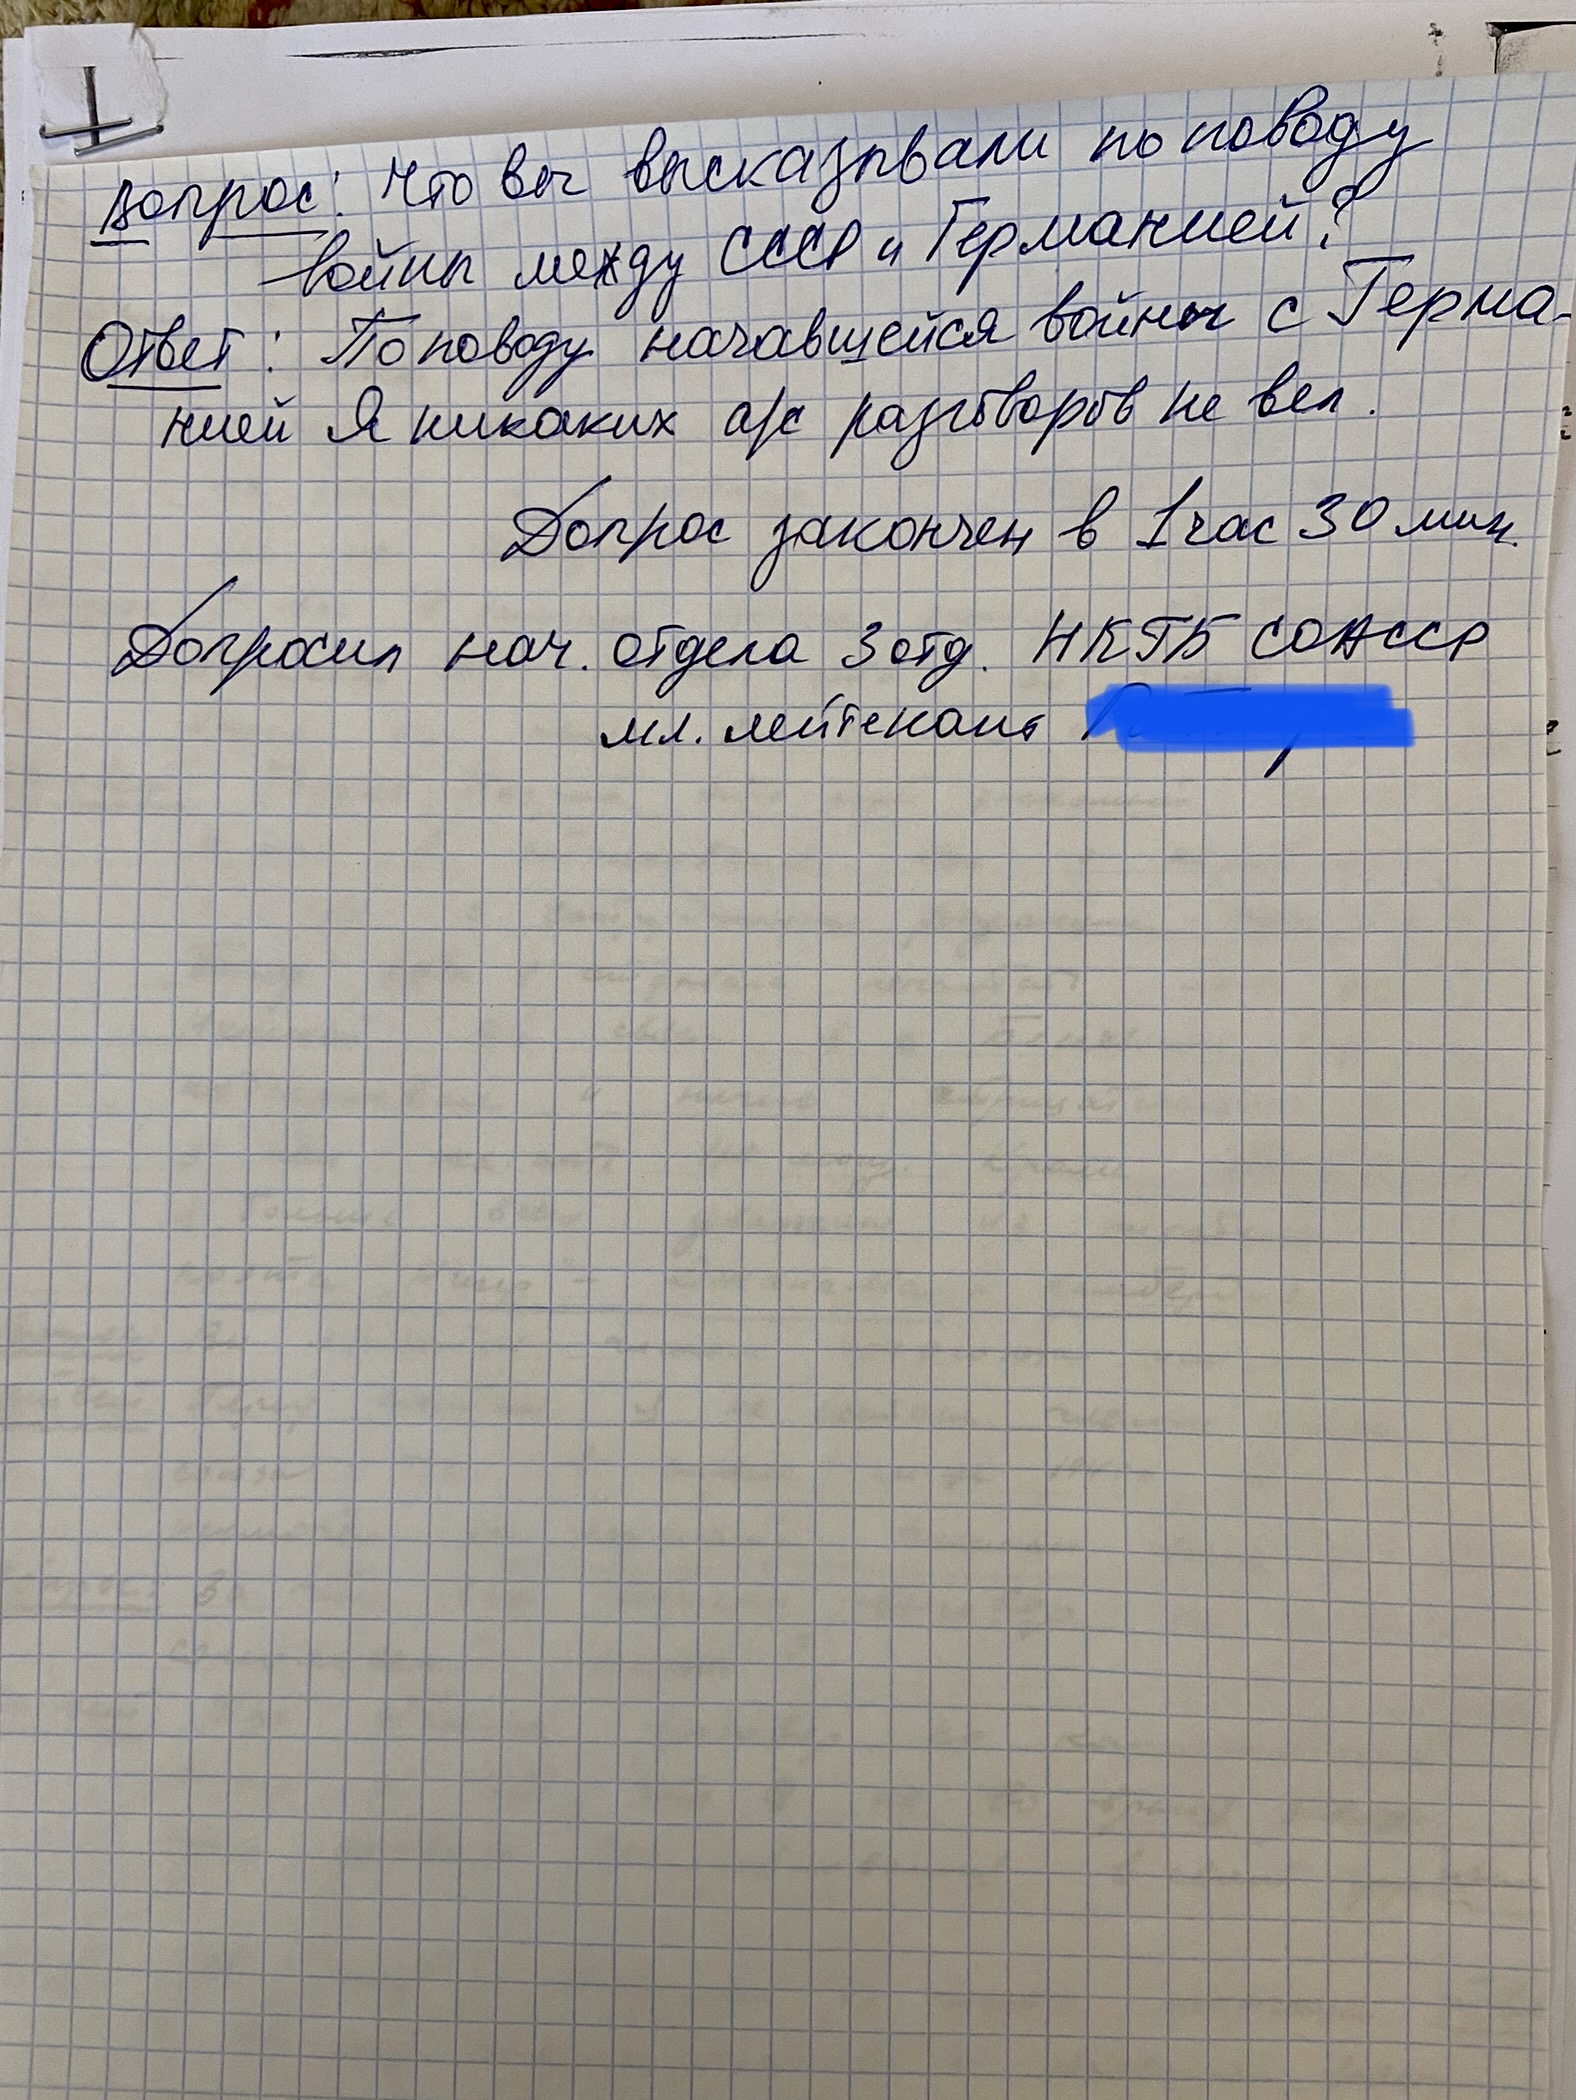 Вопрос: Что вы высказывали по поводу
войны между СССР и Германией?
Ответ: По поводу начавшейся войны с Герма-
нией Я никаких а/с разговоров не вел.
Допрос закончен в 1 час 30 мин.
Допросил нач. отдела 3 отд. НКГБ СОАССР
мл. лейтенант